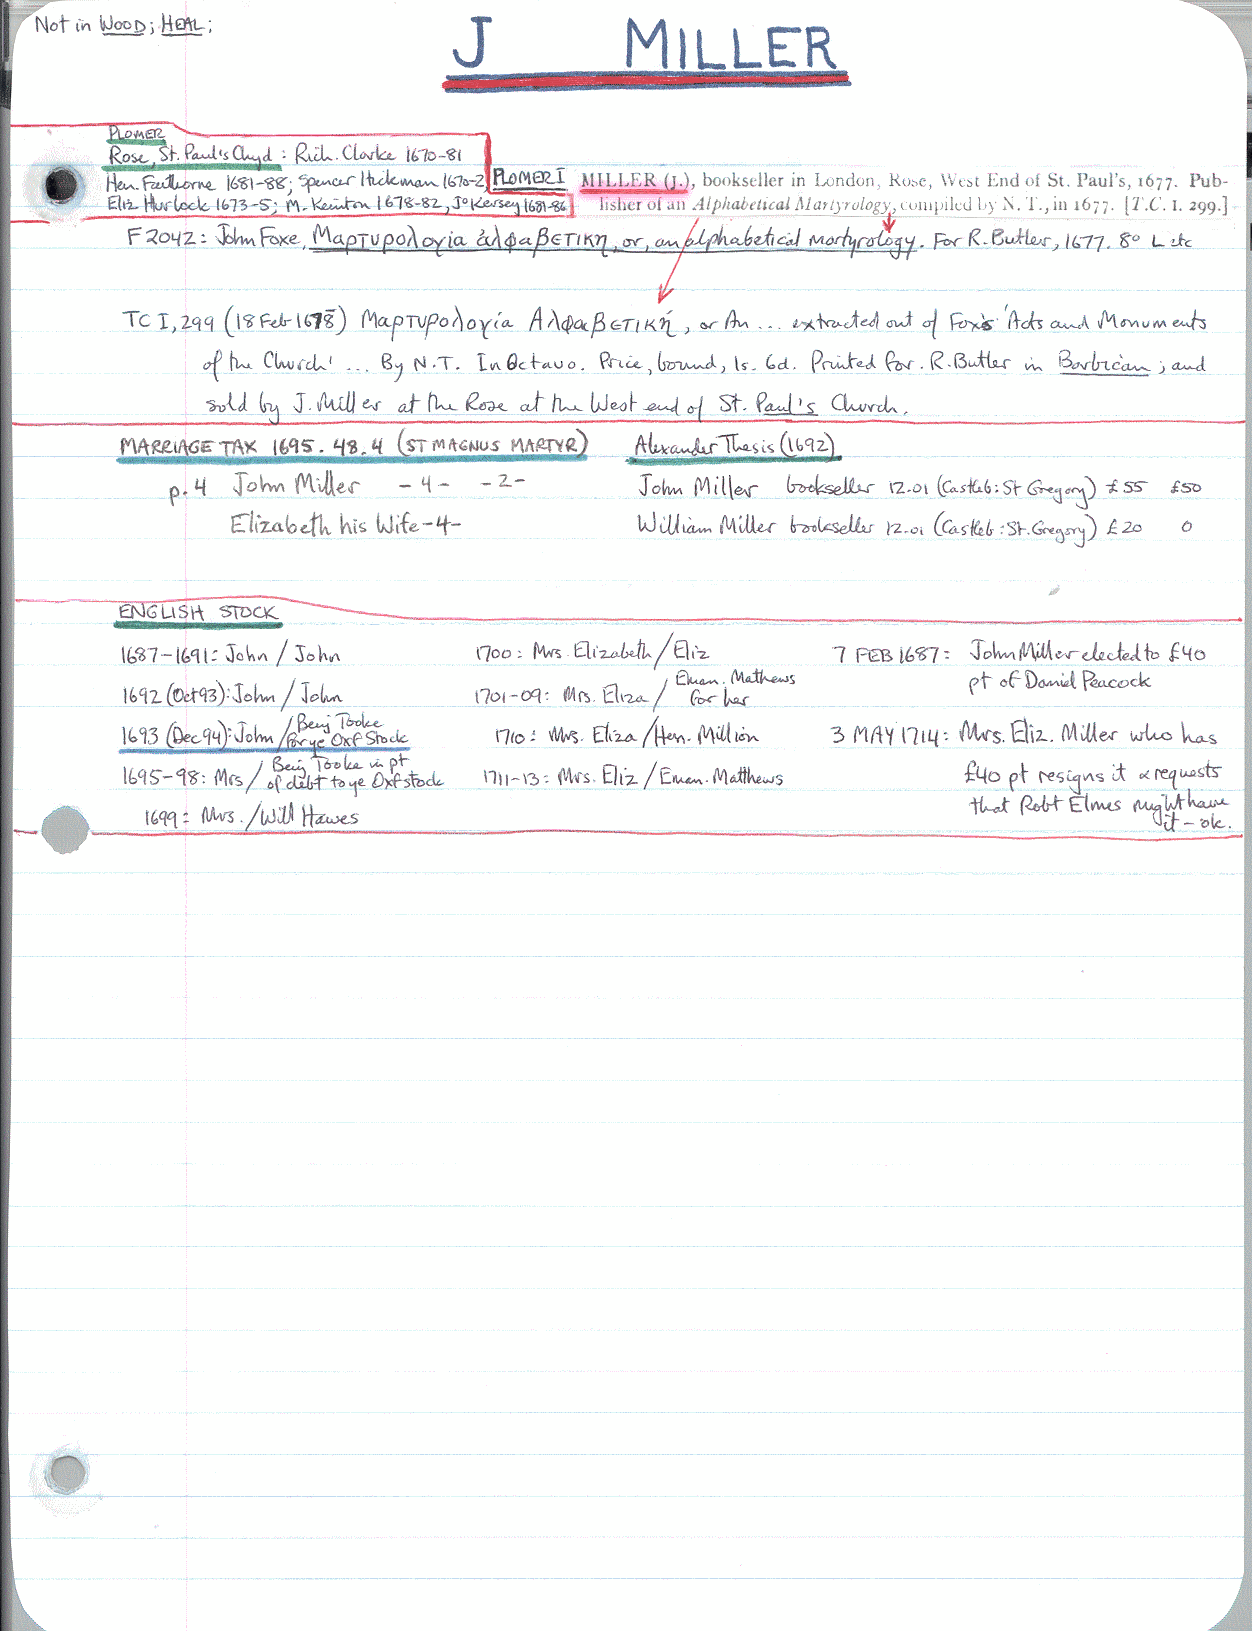 Not in WOOD; HEAL;
J MILLER
PLOMER
Rose, St. Paul's Chyd: Rich. Clarke 1670-81
Hen. Faithorne 1681-88; Spencer Hickman 1670-2
Eliz Hurlock 1673-5; M. Keinton 1678-82, Jo Kersey 1681-86
PLOMER I
MILLER (J.), bookseller in London, Rose, West End of St. Paul's, 1677. Pub-
lisher of an Alphabetical Martyrology, compiled by N. T., in 1677. [T.C. I. 299.]
F2042: John Foxe, Μαρτυρολογία ἀλφαβετικη, or, an alphabetical martyrology. For R. Butler, 1677. 8° L etc
TC I, 299 (18 Feb 1678) Μαρτυρολογία Αλφαβετική, or An ... extracted out of Fox's 'Acts and Monuments
of the Church' ... By N.T. In Octavo. Price, bound, 1s. 6d. Printed for R. Butler in Barbican; and
sold by J. Miller at the Rose at the West end of St. Paul's Church.
MARRIAGE TAX 1695. 48.4 (ST MAGNUS MARTYR)
p.4 John Miller -4- -2-
Elizabeth his Wife -4-
Alexander Thesis (1692)
John Miller bookseller 12.01 (Castleb: St Gregory) £55 £50
William Miller bookseller 12.01 (Castleb: St. Gregory) £20 0
ENGLISH STOCK
1687-1691: John / John
1692 (Oct 93): John / John
1693 (Dec 94): John / Benj Tooke
for ye Oxf Stock
1695-98: Mrs / Benj Tooke in pt
of debt to ye Oxf stock
1699: Mrs. / Will Hawes
1700: Mrs. Elizabeth / Eliz
1701-09: Mrs. Eliza / Eman. Mathews
for her
1710: Mrs. Eliza / Hen. Million
1711-13: Mrs. Eliz / Eman. Matthews
7 FEB 1687: John Miller elected to £40
pt of Daniel Peacock
3 MAY 1714: Mrs. Eliz. Miller who has
£40 pt resigns it & requests
that Robt Elmes might have
it - ok.